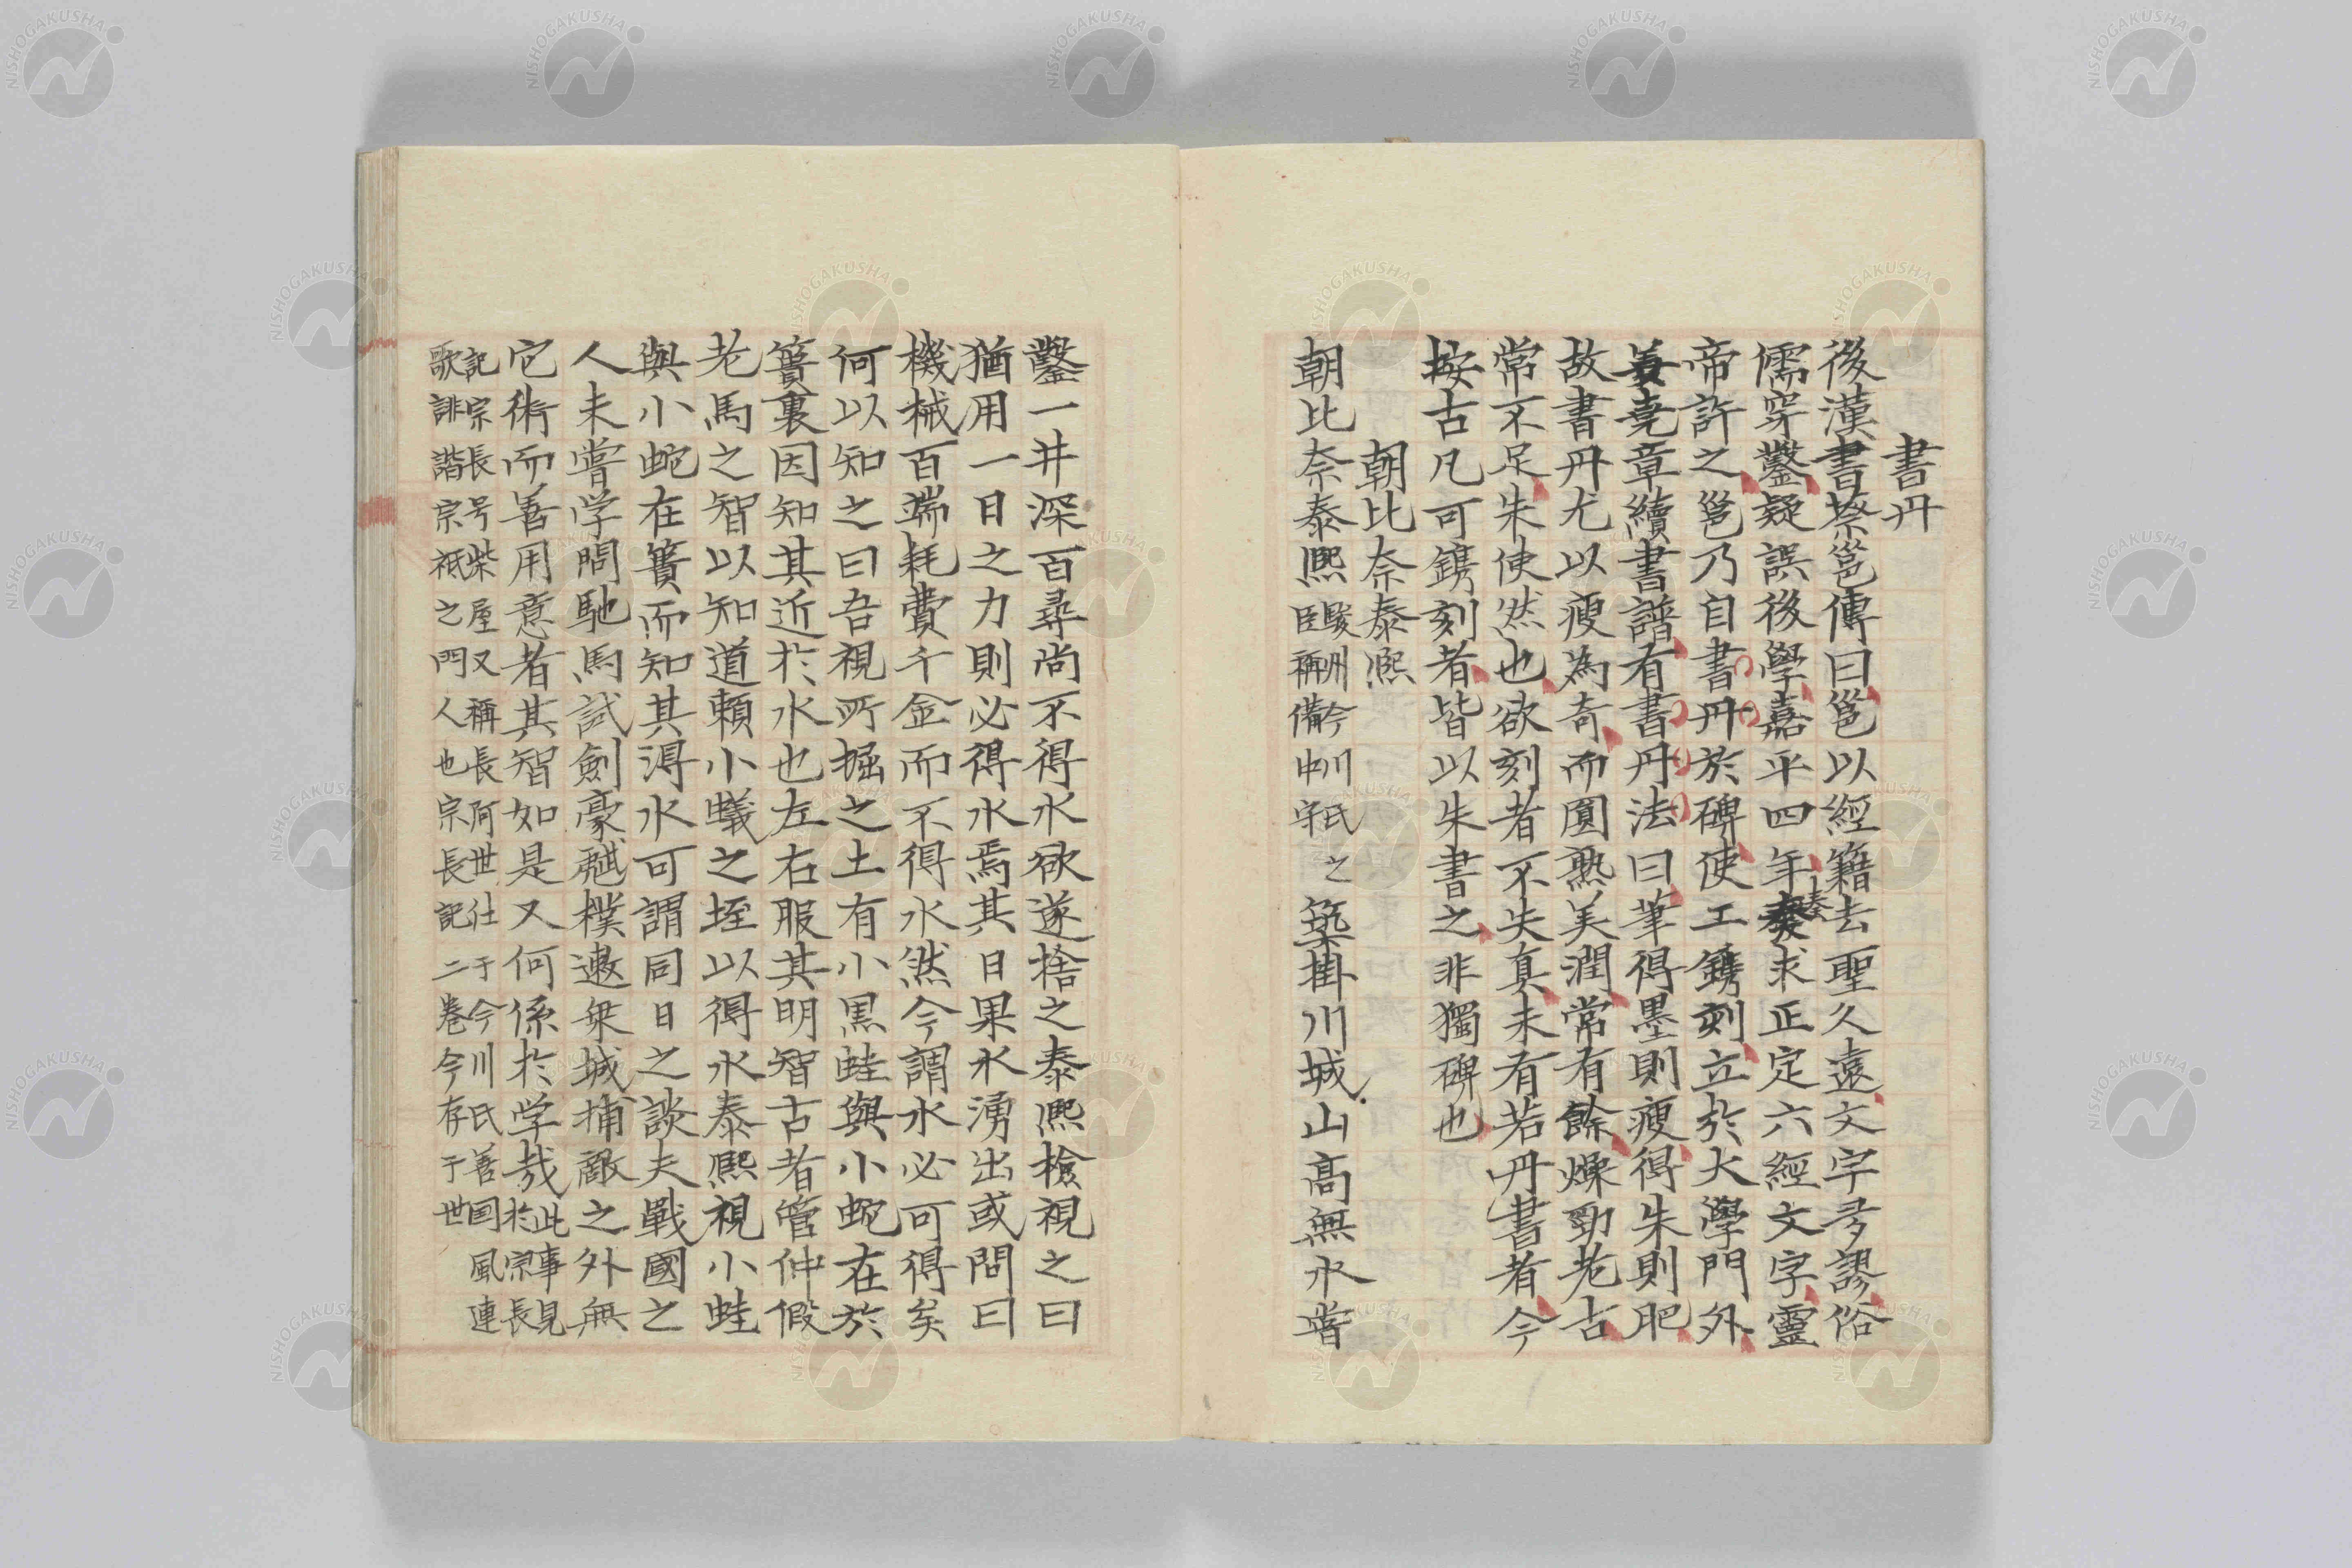 書丹
後漢書蔡邕傳曰邕以經籍去聖久遠文字多謬俗
儒穿鑿疑誤後學嘉平四年奏求正定六經文字靈
帝許之邕乃自書丹於碑使工鐫刻立於大學門外
姜堯章續書譜有書丹法曰筆得墨則瘦得朱則肥
故書丹尤以瘦為奇而圓熟美潤常有餘燥勁老古
常不足朱使然也欲刻者不失真未有若丹書者今
按古凡可鐫刻者皆以朱書之非獨碑也
朝比奈泰熙
朝比奈泰熙駿州今川氏之臣稱備中守築掛川城山高無水嘗
鑿一井深百尋尚不得水欲遂捨之泰熙檢視之曰
猶用一日之力則必得水焉其日果水湧出或問曰
機械百端耗費千金而不得水然今謂水必可得矣
何以知之曰吾視所掘之土有小黒蛙與小蛇在於
簣裏因知其近於水也左右服其明智古者管仲假
老馬之智以知道賴小蟻之垤以得水泰熙視小蛙
與小蛇在簣而知其淂水可謂同日之談夫戰國之
人未嘗学問馳馬試劍豪飈樸遬乗城捕敵之外無
它術而善用意者其智如是又何係於学哉此事見於宗長
記宗長号柴屋又稱長阿世仕于今川氏善国風連
歌誹諧宗祗之門人也宗長記二卷今存于世
NISHOGAKUSHA